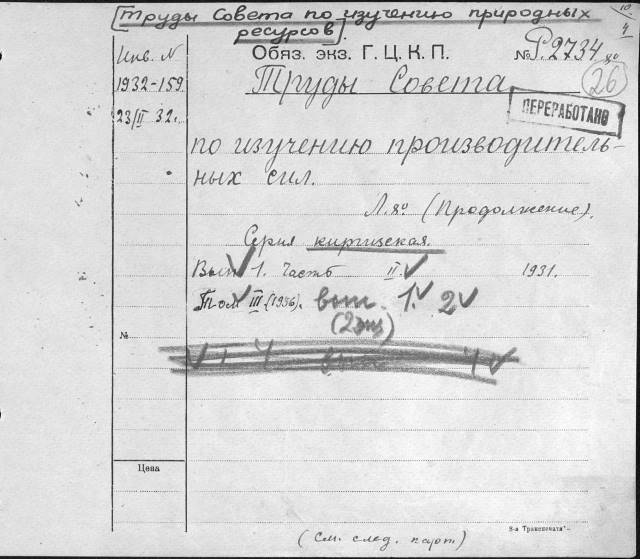 [Труды Совета по изучению природных
ресурсов].
10/4
Инв. N
Обяз. экз. Г.Ц.К.П.
№ Р.2734 8°
1932-159
Труды Совета
26
23/II 32г.
ПЕРЕРАБОТАНО
по изучению производитель-
ных сил.
Л. 8° (Продолжение).
Серия киргизская.
Вып 1. Часть II. 1931.
Том III (1936). вып. 1. 2
(2 экз)
№
Цена
8-я Транспечати"–
(См. след. карт.)